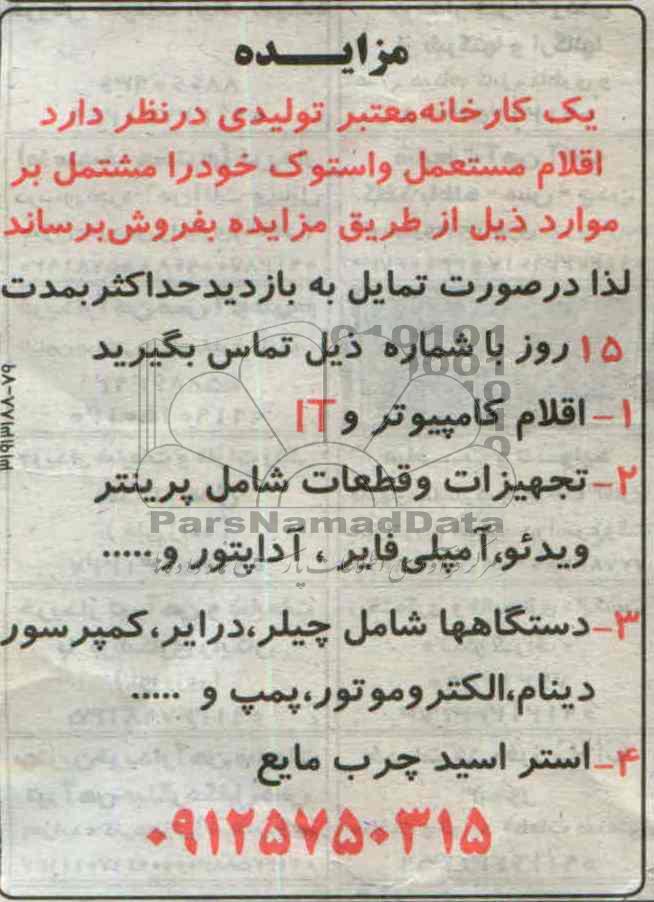 مزایـــده
یک کارخانه‌معتبر تولیدی درنظر دارد
اقلام مستعمل واستوک خودرا مشتمل بر
موارد ذیل از طریق مزایده بفروش‌برساند
لذا درصورت تمایل به بازدیدحداکثربمدت
۱۵ روز با شماره ذیل تماس بگیرید
۱-اقلام کامپیوتر و IT
۲-تجهیزات وقطعات شامل پرینتر
ParsNamadData
ویدئو،آمپلی‌فایر ، آداپتور و.....
۳-دستگاهها شامل چیلر،درایر،کمپرسور
دینام،الکتروموتور،پمپ و .....
۴-استر اسید چرب مایع
۰۹۱۲۵۷۵۰۳۱۵